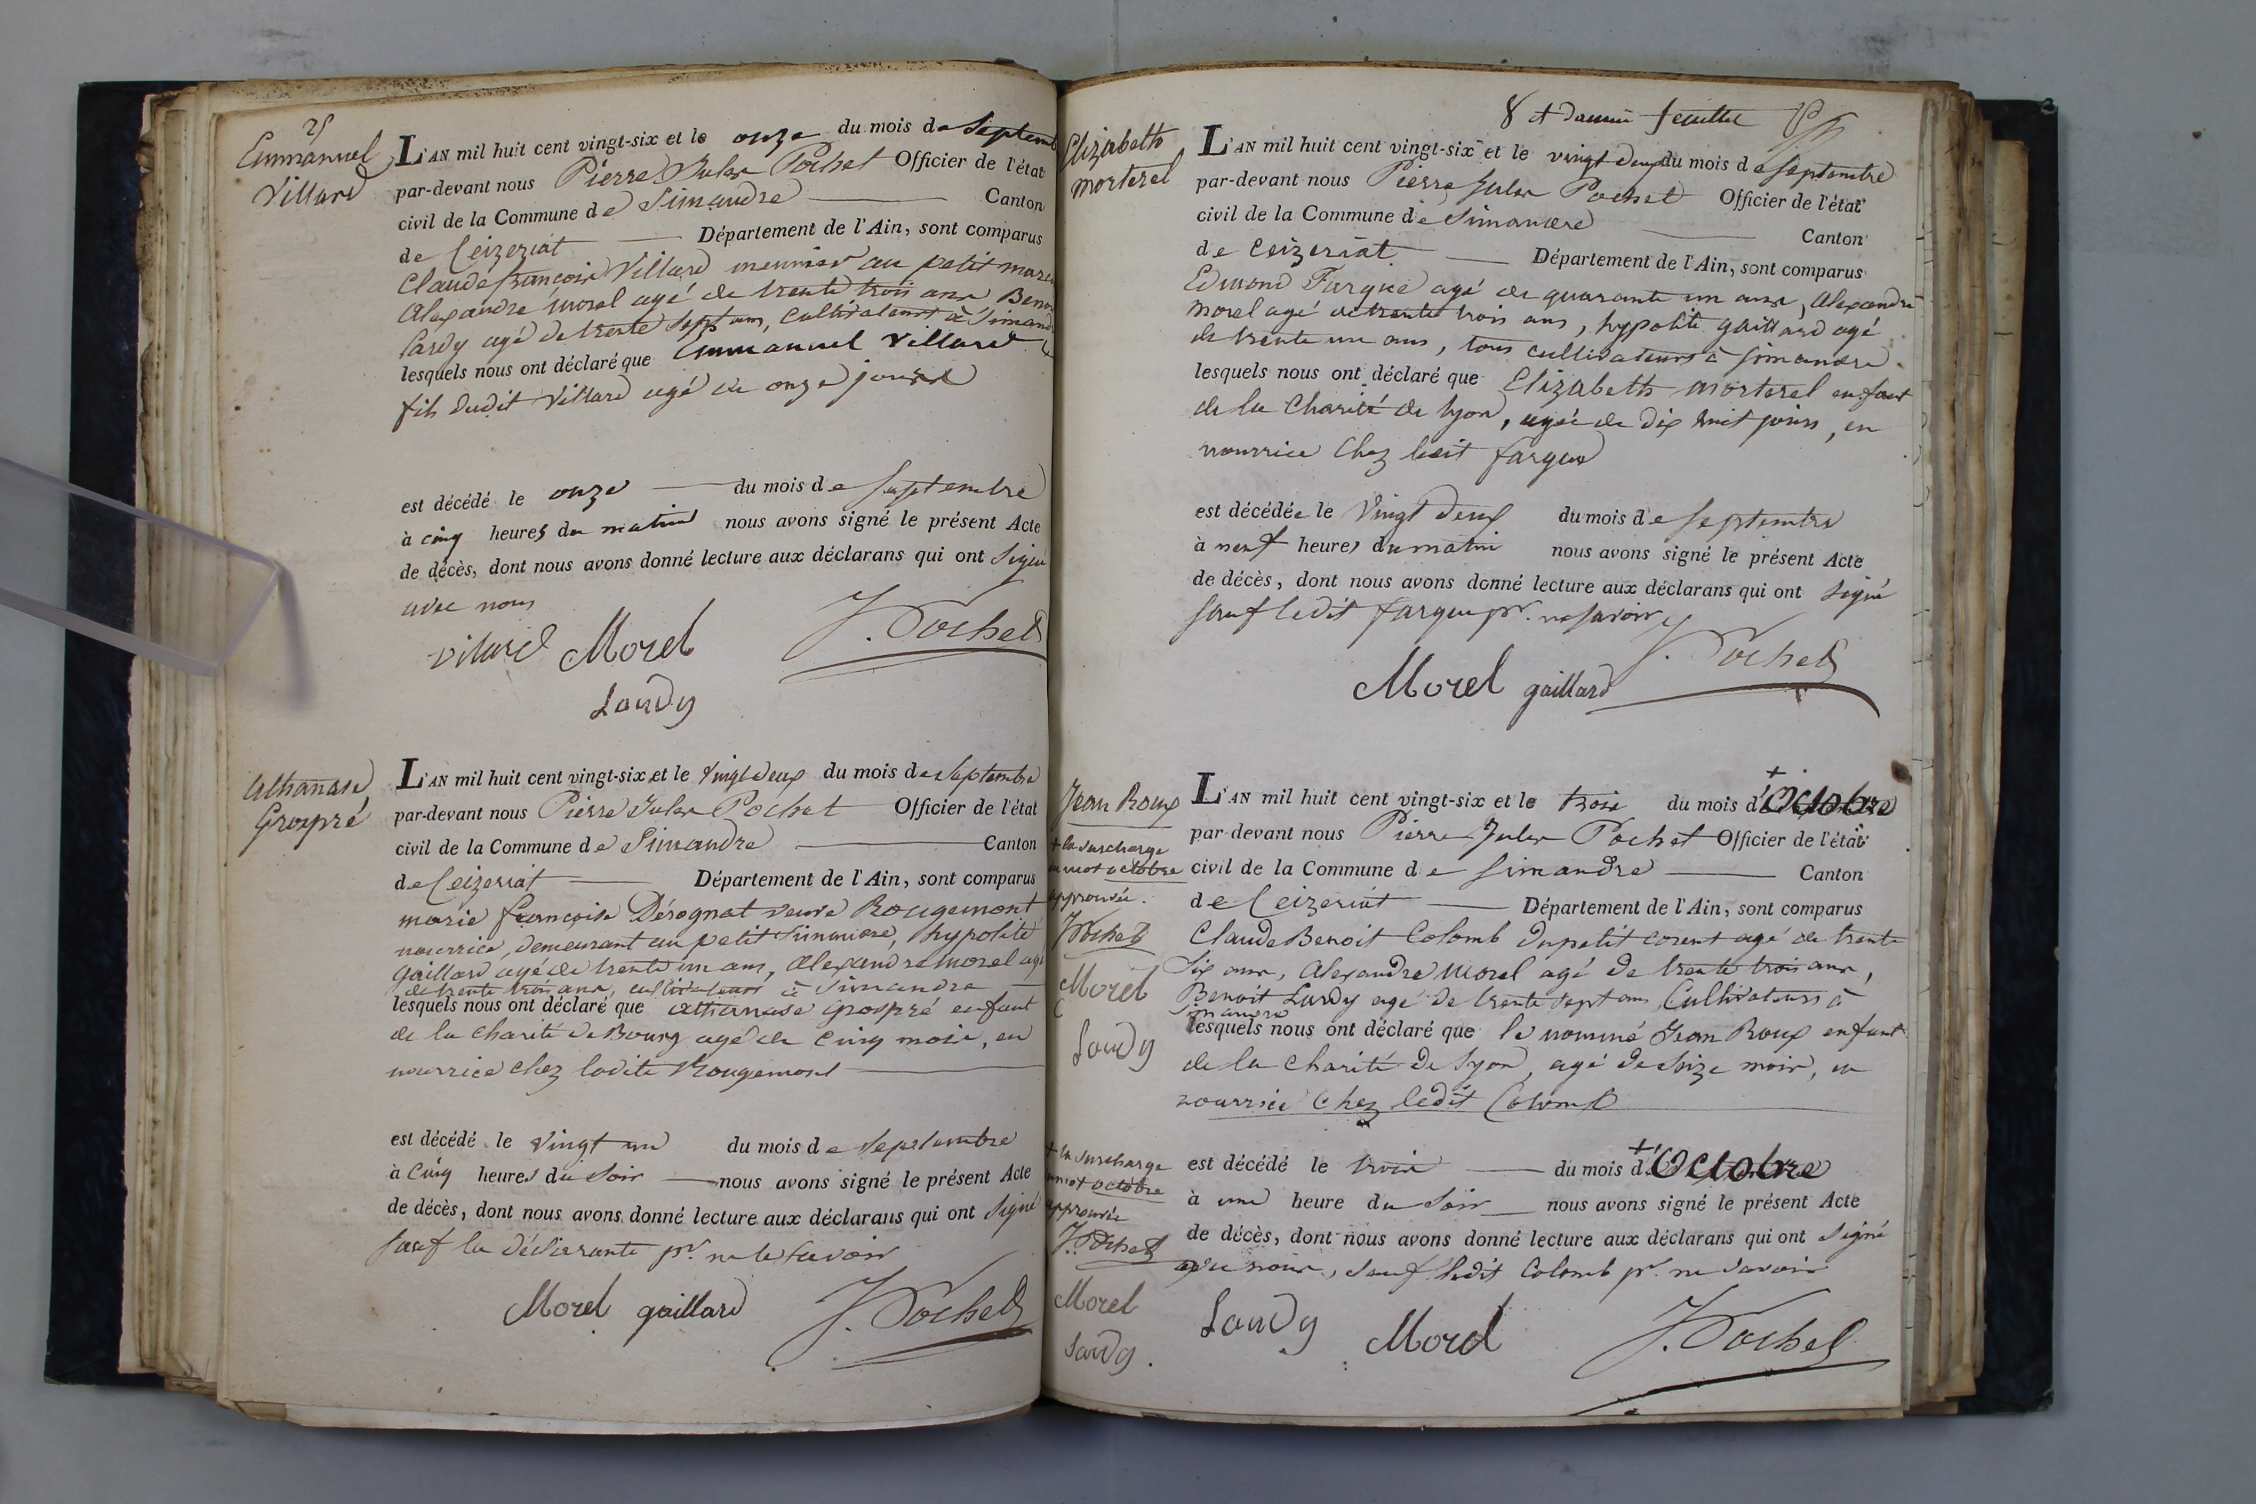 25
Emmanuel
Villard
L'AN mil huit cent vingt-six et le onze du mois de Septemb
par-devant nous Pierre Jules Pochet Officier de l'état
civil de la Commune de Simandre Canton
de Ceizeriat Département de l'Ain, sont comparus
Claude françois Villard meunier au petit
Alexandre morel agé de trente trois ans Benoi
Lardy agé de trente sept ans, cultivateurs à Simand
lesquels nous ont déclaré que Emmanuel Villard
fils dudit Villard agé de onze jours
est décédé le onze du mois de Septembre
à cinq heures du matin nous avons signé le présent Acte
de décès, dont nous avons donné lecture aux déclarans qui ont signé
avec nous
vilard Morel J. Pochet
Lardy
Athanase
Grospré
L'AN mil huit cent vingt-six et le vingt deux du mois de Septembre
par-devant nous Pierre Jules Pochet Officier de l'état
civil de la Commune de Simandre Canton
de Ceizeriat Département de l'Ain, sont comparus
marie françoise Dérognat veuve Rougemont
nourrice, demeurant au petit Simandre, hypolite
gaillard agé de trente un ans, alexandre morel agé
de trente trois ans, cultivateurs à Simandre
lesquels nous ont déclaré que athanase grospré enfant
de la charité de Bourg agé de cinq mois, en
nourrice chez ladite Rougemont
est décédé le vingt un du mois de Septembre
à cinq heures du soir nous avons signé le présent Acte
de décès, dont nous avons donné lecture aux déclarans qui ont signé
sauf la déclarante pr. ne le savoir
Morel gaillard J. Pochet
8 et dernier feuillet
Elizabeth
morterel
L'AN mil huit cent vingt-six et le vingt deux du mois de Septembre
par-devant nous Pierre Jules Pochet Officier de l'état
civil de la Commune de Simandre Canton
de Ceizeriat Département de l'Ain, sont comparus
Edmond Fargue agé de quarante un ans, alexandre
morel agé de trente trois ans, hypolite gaillard agé
de trente un ans, tous cultivateurs à Simandre
lesquels nous ont déclaré que Elizabeth morterel enfant
de la charité de lyon, agée de dix huit jours, en
nourrice chez ledit fargue
est décédée le vingt deux du mois de septembre
à neuf heures du matin nous avons signé le présent Acte
de décès, dont nous avons donné lecture aux déclarans qui ont signé
sauf ledit fargue pr. ne savoir
J. Pochet
Morel gaillard
Jean Roux
+ la surcharge
du mot octobre
approuvée.
J. Pochet
Morel
Lardy
L'AN mil huit cent vingt-six et le trois du mois d'Octobre
par-devant nous Pierre Jules Pochet Officier de l'état
civil de la Commune de Simandre Canton
de Ceizeriat Département de l'Ain, sont comparus
Claude Benoit Colomb du petit corent agé de trente
six ans, Alexandre Morel agé de trente trois ans,
Benoit Lardy agé de trente sept ans Cultivateurs à
Simandre
lesquels nous ont déclaré que le nommé Jean Roux enfant
de la charité de Lyon, agé de seize mois, en
nourrice chez ledit Colomb
+ la surcharge
du mot octobre
approuvée
J. Pochet
Morel
Lardy.
est décédé le trois du mois d'Octobre
à une heure du soir nous avons signé le présent Acte
de décès, dont nous avons donné lecture aux déclarans qui ont signé
avec nous, sauf ledit Colomb pr. ne savoir
Lardy Morel J. Pochet